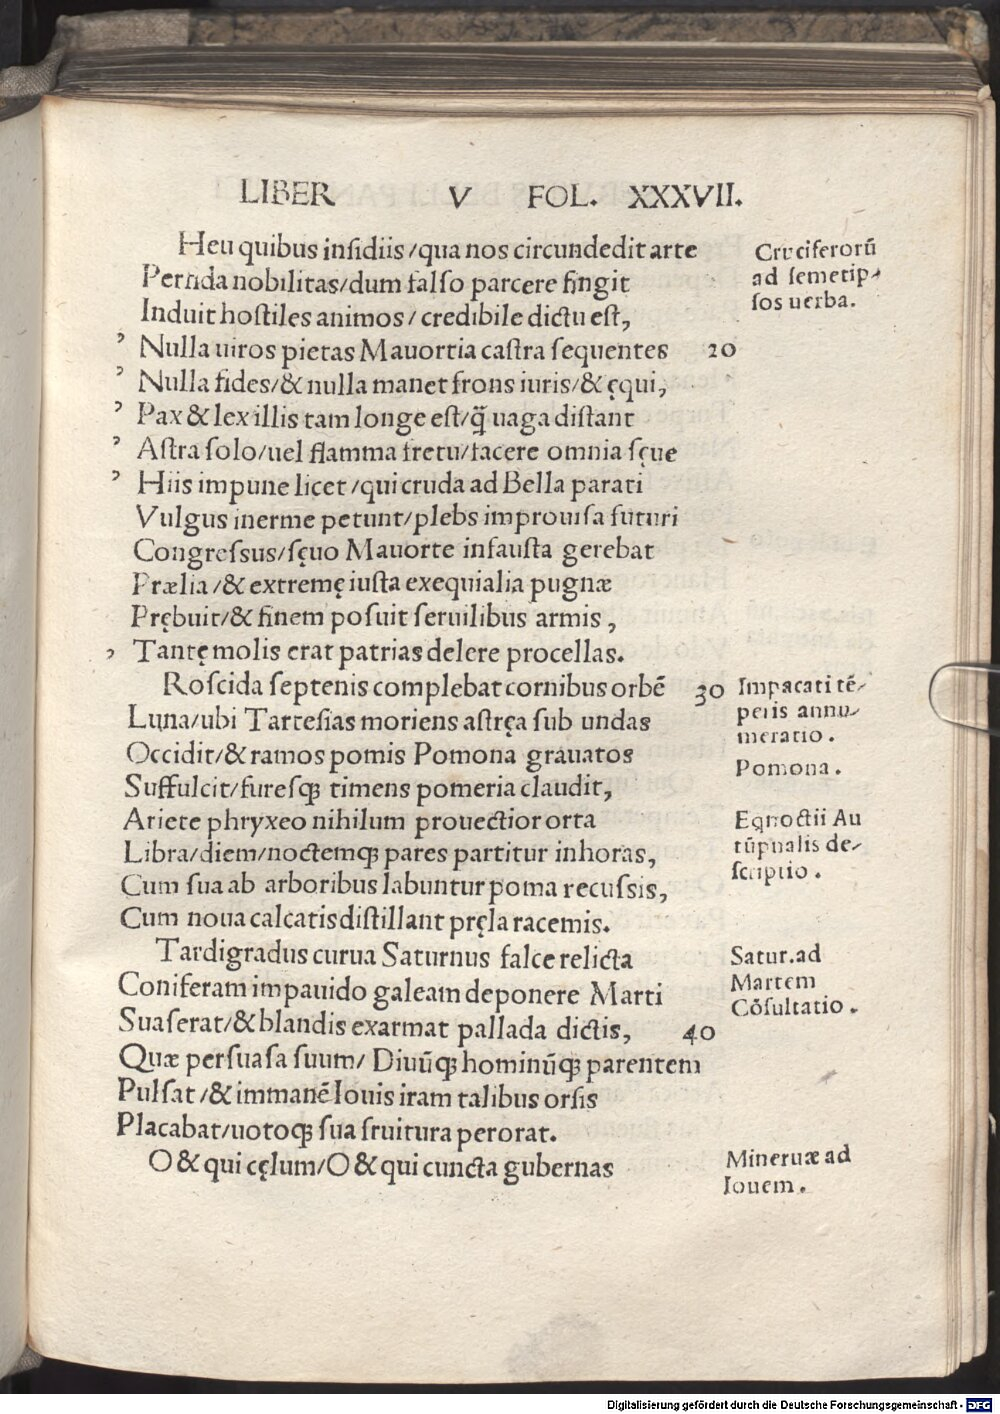 LIBER V FOL. XXXVII.
Heu quibus insidiis/qua nos circundedit arte
Perfida nobilitas/dum falso parcere fingit
Induit hostiles animos/credibile dictu est,
Nulla uiros pietas Mauortia castra sequentes 20
Nulla fides/& nulla manet frons iuris/& ęqui,
Pax & lex illis tam longe est/q̃ uaga distant
Astra solo/uel flamma fretu/facere omnia sęue
Hiis impune licet/qui cruda ad Bella parati
Vulgus inerme petunt/plebs improuisa futuri
Congressus/sęuo Mauorte infausta gerebat
Prælia/& extremę iusta exequialia pugnæ
Prębuit/& finem posuit seruilibus armis,
Tantę molis erat patrias delere procellas.
Roscida septenis complebat cornibus orbē 30
Luna/ubi Tartesias moriens astręa sub undas
Occidit/& ramos pomis Pomona grauatos
Suffulcit/furesqꝫ timens pomeria claudit,
Ariete phryxeo nihilum prouectior orta
Libra/diem/noctemqꝫ pares partitur in horas,
Cum sua ab arboribus labuntur poma recussis,
Cum noua calcatis distillant pręla racemis.
Tardigradus curua Saturnus falce relicta
Coniferam impauido galeam deponere Marti
Suaserat/& blandis exarmat pallada dictis, 40
Quæ persuasa suum/Diuūqꝫ hominūqꝫ parentem
Pulsat/& immanē Iouis iram talibus orsis
Placabat/uotoqꝫ sua fruitura perorat.
O & qui cęlum/O & qui cuncta gubernas
Cruciferorū
ad semetip-
sos uerba.
Impacati tē-
peris annu-
meratio.
Pomona.
Eqnoctii Au
tūpnalis de-
scriptio.
Satur. ad
Martem
Cōsultatio.
Mineruæ ad
Iouem.
Digitalisierung gefördert durch die Deutsche Forschungsgemeinschaft - DFG